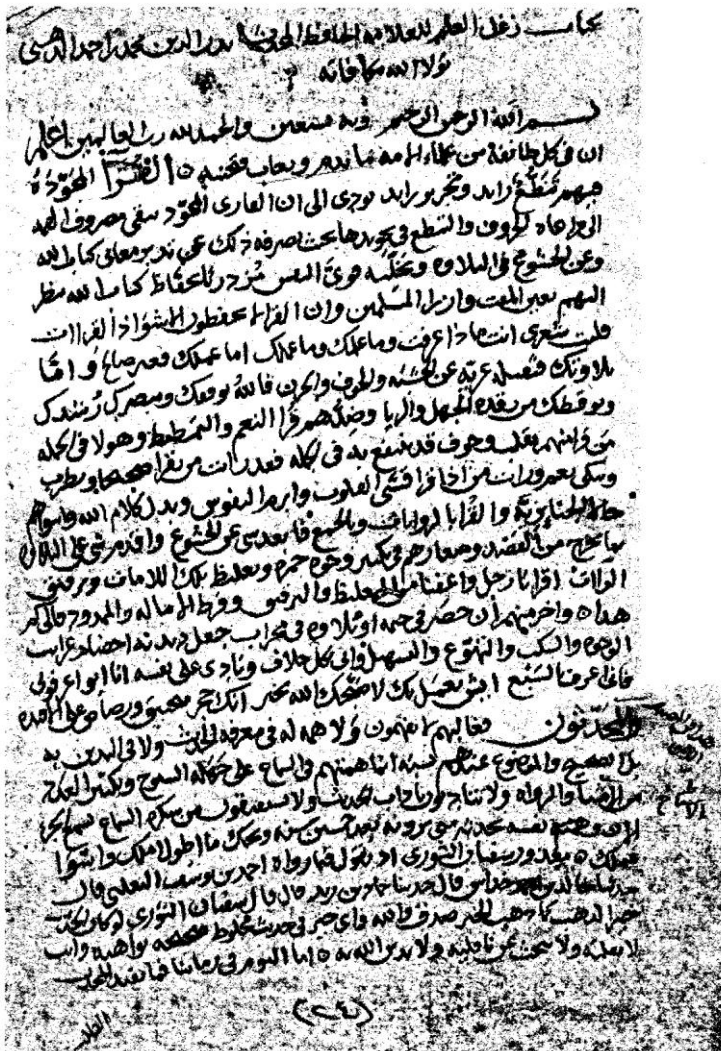 كتاب زغل العلم للعلامة الحافظ المحدث بدر الدين محمد بن احمد الذهبي
تولاه الله مكافاته
بسم الله الرحمن الرحيم وبه نستعين والحمد لله رب العالمين اعلم
ان في كل طائفة من علماء الامة ما يذم ويعاب فتجنبه ن القرا المجودة
فيهم تنطع زايد وتحرير زايد يودي الى ان القارى المجود يبقى مصروف الهمة
الى مراعاة الحروف والتنطع في تجويدها بحيث يصرفه ذلك عن تدبر معاني كتاب الله
وعن الخشوع في التلاوة ويخليه قوي النفس مزدريا لحفاظ كتاب الله ينظر
اليهم بعين المقت وان المسلمين وان القرا لا يحفظون الا شواذ القراات
فليت شعري انت ماذا عرفت وما علمك وما عملك اما عملك فغير صالح واما
تلاوتك فثقيلة عرية عن الخشية والخوف والحزن فالله يوفقك ويبصرك رشدك
ويوقظك من رقدة الجهل والريا وضدهم قرا النغم والتمطيط وهولا في الجملة
من قرا منهم بقلب وخوف قد ينتفع به في الجملة فقد رايت من يقرا صحيحا ويطرب
ويبكي نعم ورايت من اذا قرا قسى القلوب وابرم النفوس وبدل كلام الله واسواهم
حالا الجنايزية والقرا بالروايات وبالجمع فابعد شي عن الخشوع واقدم شي على التلاوة
بما يخرج من القصد وشعارهم في تكثير وجوه حمزة وتغليظ تلك اللامات وترقيق
الراات اقرا يا رجل واعفنا من التغليظ والترقيق وفرط الامالة والمدود ووالى كم
هذا ه واخر منهم ان حضر في ختمة او تلاوة في محراب جعل ديدنه احضار غرايب
الوجوه والسكت والتهوع والتسهيل واتى بكل خلاف ونادى على نفسه انا ابو اعرفوني
فاني اعرف السبع ايش نعمل بك لا صبحك الله بخير انك حجر منجنيق ورصاص على الافيدة
المحدثون فغالبهم لا يفهمون ولا همة له في معرفة الحديث ولا في التدين به
بل الصحيح والموضوع عندهم نسبة انما همتهم في السماع على جهلة الشيوخ وتكثير العدد
من الاجزا والرواة ولا يتادبون باداب الحديث ولا يستفيقون من سكرة السماع يسمع الجز
ونفسه تحدثه متى يرويه بعد خمسين سنة ويحك ما اطول املك واسوا
عملك ه معذور سفيان الثوري اذ يقول فيما رواه احمد بن يوسف التغلبي قال
حدثنا خالد بن خداش قال حدثنا حماد بن زيد قال قال سفيان الثوري لو كان الحديث
خيرا لذهب كما ذهب الخير صدق والله واي خير في حديث مخلوط صحيحه بواهيه وانت
لا تفليه ولا تبحث عن ناقليه ولا تدين الله به ه اما اليوم في زماننا فما يفيد المحدث
الطلب
(٢٤٠)